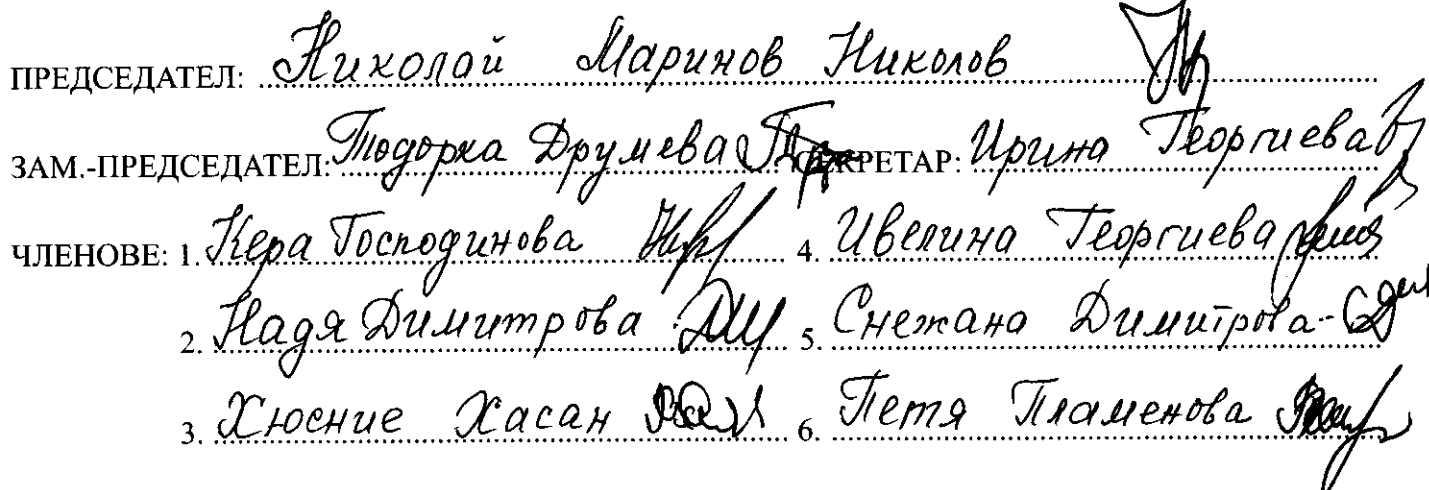 ПРЕДСЕДАТЕЛ: Николай Маринов Николов
ЗАМ.-ПРЕДСЕДАТЕЛ: Тодорка Друмева СЕКРЕТАР: Ирина Георгиева
ЧЛЕНОВЕ: 1. Кера Господинова 4. Ивелина Георгиева
2. Надя Димитрова 5. Снежана Димитрова-
3. Хюсние Хасан 6. Петя Пламенова